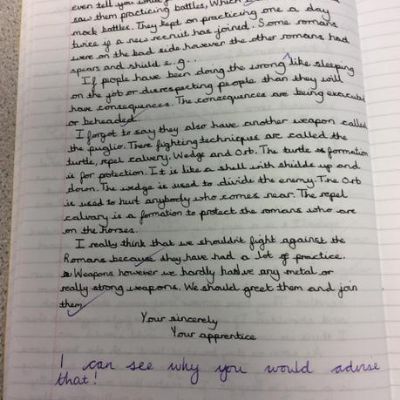 even tell you
saw them practicing battles, Which
mock battles. They kept on practicing one a day
twice if a new recruit has joined. Some romans
were on the bad side however the other romans had
spears and shield e.g...
If people have been doing the wrong like sleeping
on the job or disrespecting people than they will
have consequences. The consequences are being executed
or beheaded.
I forgot to say they also have another weapon called
the puglio. There fighting techniques are called the
turtle, repel calvery, Wedge and Orb. The turtle formation
is for protection. It is like a shell with shilds up and
down. The wedge is used to divide the enemy. The Orb
is used to hurt anybody who comes near. The repel
calvary is a formation to protect the romans who are
on the horses.
I really think that we shouldn't fight against the
Romans because they have had a lot of practice.
Weapons however we hardly have any metal or
really strong weapons. We should greet them and join
them.
Your sincerely
Your apprentice
I can see why you would advise
that!